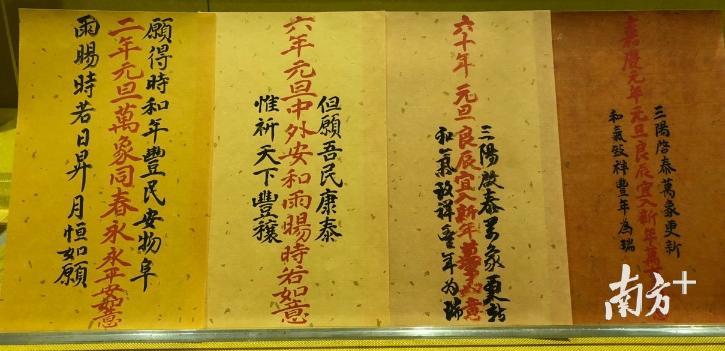 願得時和年豐民安物阜
二年元旦萬象同春永永平安如意
雨暘時若日昇月恒如願
但願吾民康泰
六年元旦中外安和雨暘時若如意
惟祈天下豐穰
三陽啟泰萬象更新
六十年元旦良辰宜入新年萬事如意
和氣致祥豐年为瑞
三陽啓泰萬象更新
嘉慶元年元旦良辰宜入新年萬
和氣致祥豐年為瑞
南方+